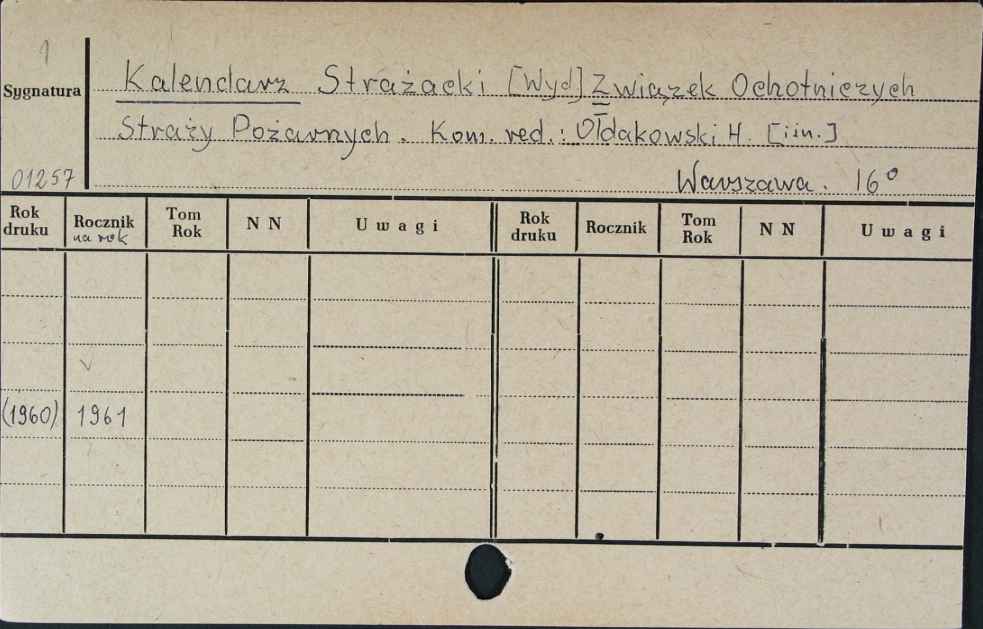 1
Sygnatura
Kalendarz Strażacki [Wyd] Związek Ochotniczych
Straży Pożarnych. Kom. red.: Ołdakowski H. [i in.]
01257
Warszawa. 16°
Rok druku Rocznik na rok Tom Rok N N Uwagi Rok druku Rocznik Tom Rok N N Uwagi
(1960) 1961